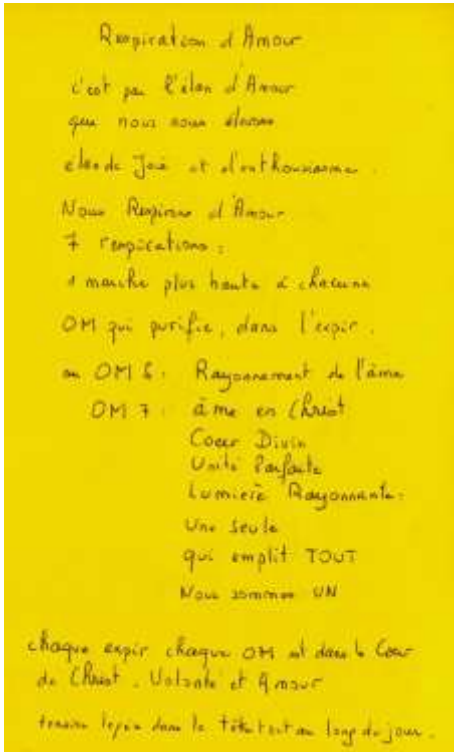 Respiration d'Amour
c'est par l'élan d'Amour
que nous nous élevons
élan de Joie et d'enthousiasme.
Nous Respirons d'Amour
7 respirations :
1 marche plus haute à chacune
OM qui purifie, dans l'expir.
au OM 6 : Rayonnement de l'âme
OM 7 : âme en Christ
Coeur Divin
Unité Parfaite
Lumière Rayonnante :
Une seule
qui emplit TOUT
Nous sommes UN
chaque expir chaque OM est dans le Coeur
du Christ. Volonté et Amour
dans la tête tout au long du jour.